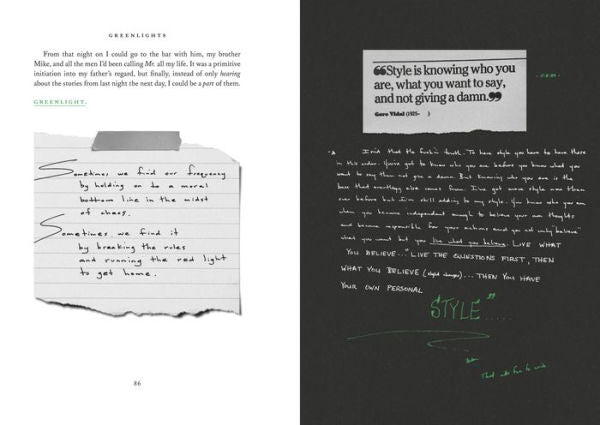 GREENLIGHTS
From that night on I could go to the bar with him, my brother
Mike, and all the men I'd been calling Mr. all my life. It was a primitive
initiation into my father's regard, but finally, instead of only hearing
about the stories from last night the next day, I could be a part of them.
GREENLIGHT.
Sometimes we find our frequency
by holding on to a moral
bottom line in the midst
of chaos.
Sometimes we find it
by breaking the rules
and running the red light
to get home.
86
“Style is knowing who you
are, what you want to say,
and not giving a damn.”
Gore Vidal (1925- )
that the fuckin truth. To have style you have to have these
in this order. You've got to know who you are before you know what you
want to say then not give a damn. But knowing who you are is the
base that everything else comes from. I've got more style now than
ever before but I'm still adding to my style. You know who you are
when you become independent enough to believe your own thoughts
and become responsible for your actions and you not only "believe"
what you want but you live what you believe. LIVE WHAT
YOU BELIEVE... LIVE THE QUESTIONS FIRST, THEN
WHAT YOU BELIEVE ... THEN YOU HAVE
YOUR OWN PERSONAL
STYLE" .....